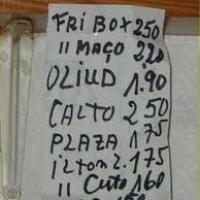 FRI BOX 250
11 MAÇO 220
OLIUD 1.90
CALTO 2 50
PLAZA 175
ILTOM L. 175
11 CUTO 160
150